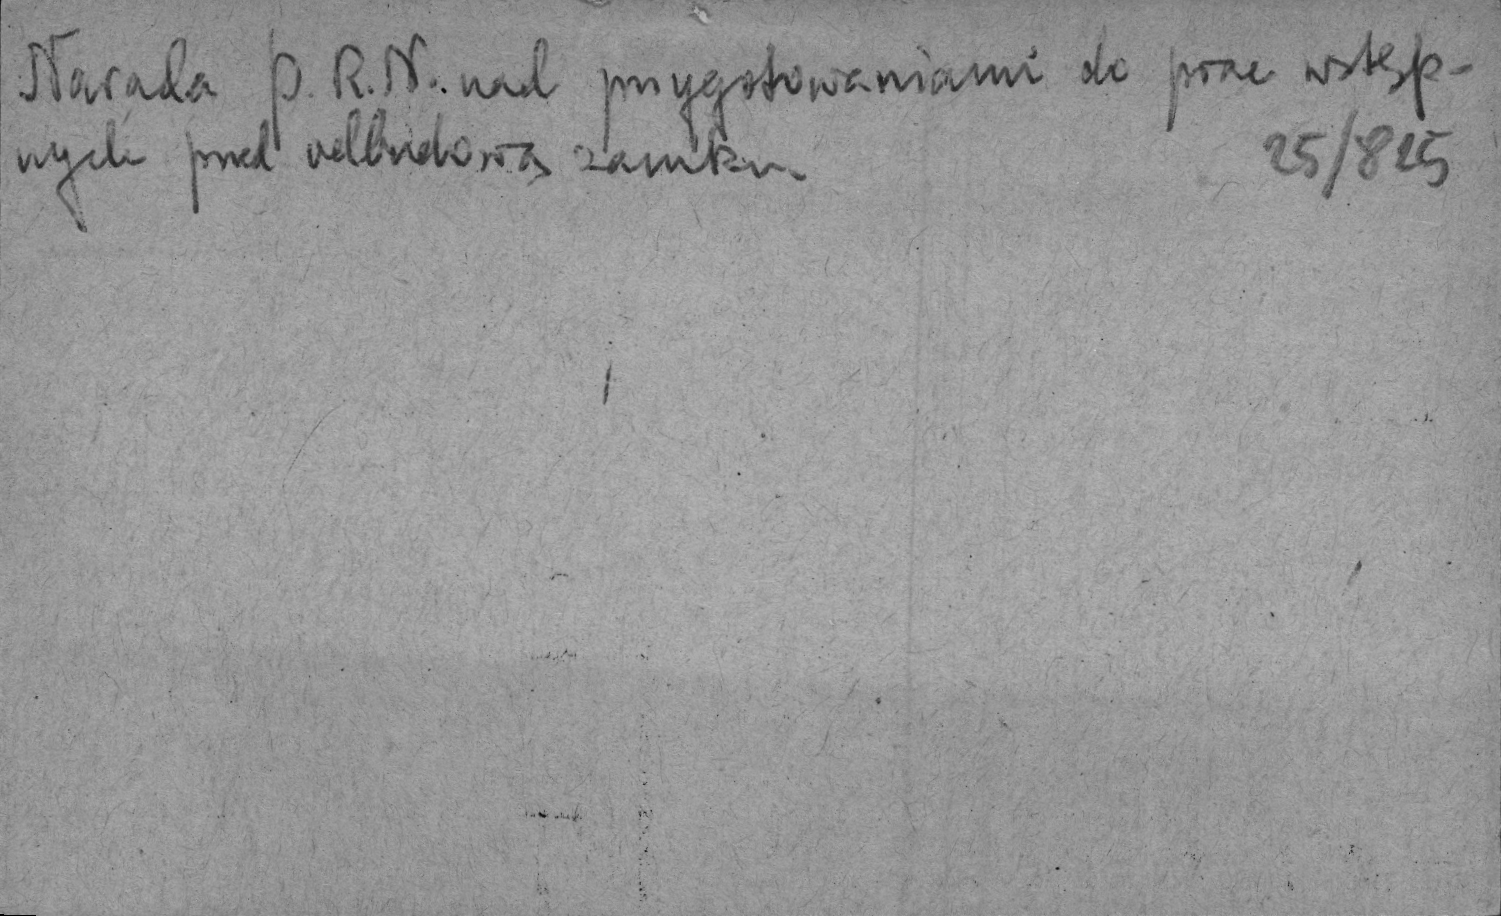 Narada P.R.N. nad przygotowaniami do prac wstęp-
nych przed odbudową zamku
25/825